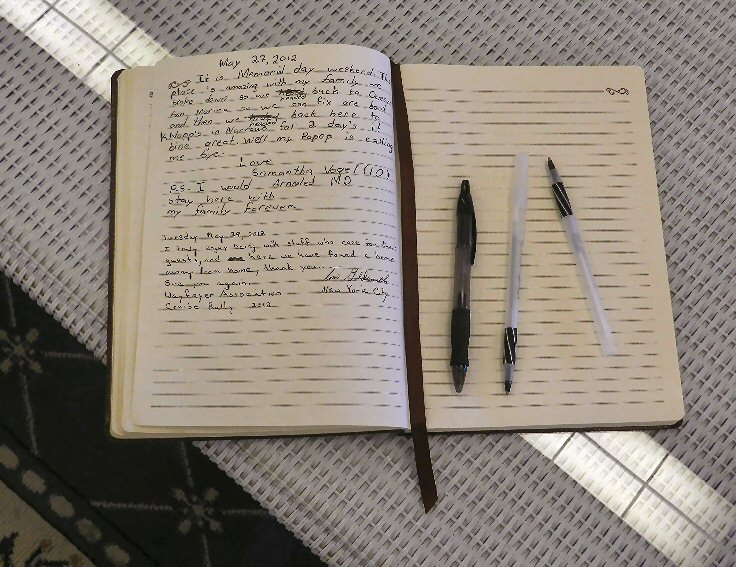 May 27, 2012
It is Memoral day weekend. This
place is amazing with my family we
brake down so we back to
so we can fix are boat
and then we back here to
Knapp's in for 2 day's it
bine great, well my Popop is calling
me bye.
Love
Samantha Vogel (10)
P.S. I would Arnold MD
stay here with
my family forever.
Tuesday May 29, 2012
I truly enjoy being with staff who care for their
guest, and here we have found a home
away from home, thank you.
See you again.
Wayfarer Association New York City
Cruise Rally 2012